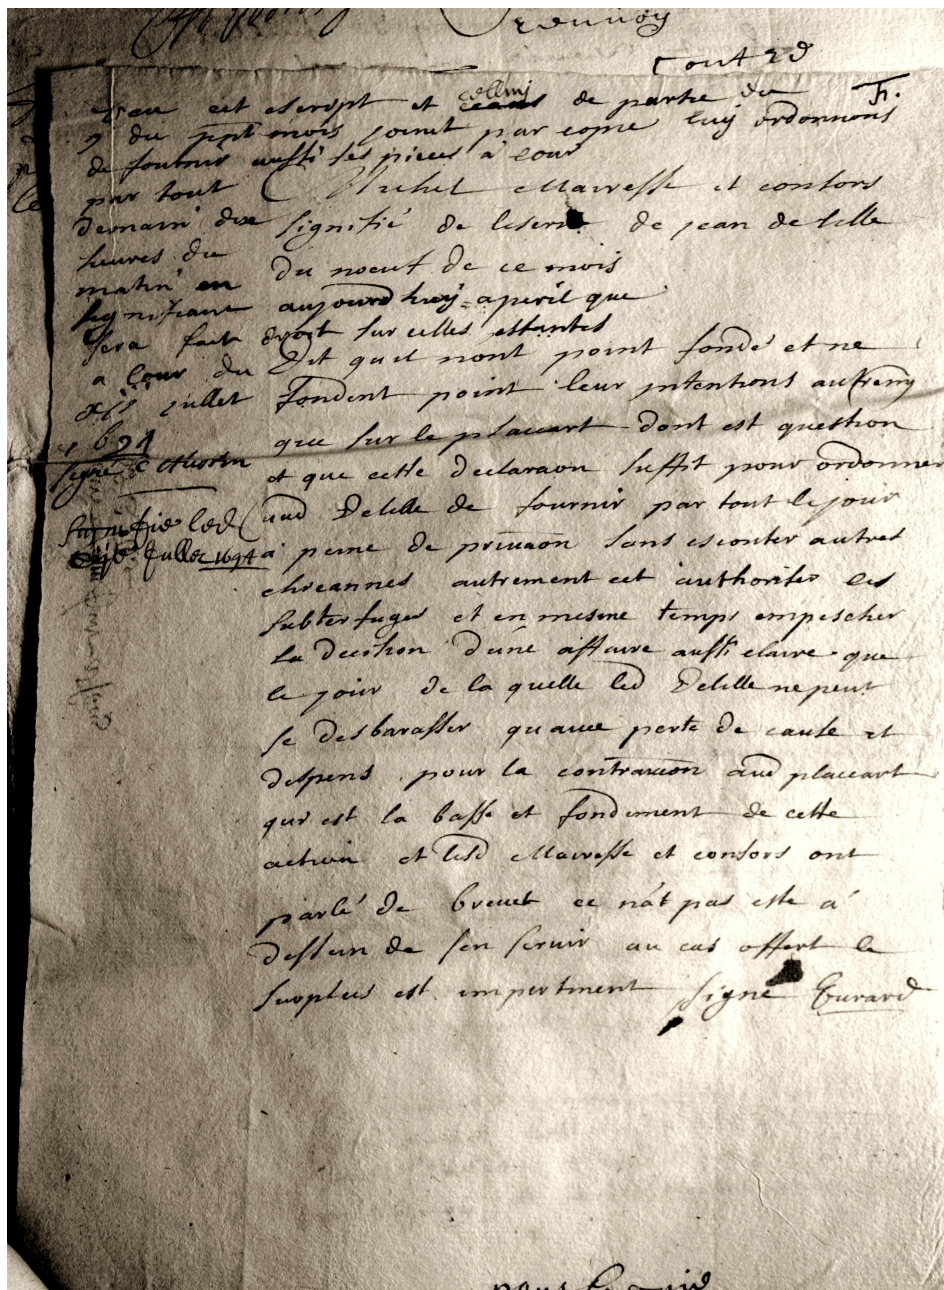 Cout 2d
Veu cet escript et celluy de partie du
9 du pnt mois joint par copie luy ordonnons
de fournir aussi ses pieces a cour
par tout
demain dix
heures du
matin en
signifiant aujourdhuy a peril que
sera fait droit sur celles estantes
a cour du
juillet
1694
signé
signifié led
Juillet 1694
Michel Mairesse et consors
signifié de lescrit de jean de lille
du noeuf de ce mois
Dit quil nont point fondé et ne
fondent point leur intentions autremt
que sur le placcart dont est question
et que cette declaraon suffit pour ordonner
aud Delille de fournir par tout le jour
a peine de priuaon sans escouter autres
autrement cet authoriser les
subterfuges et en mesme temps empescher
la decision dune affaire aussi claire que
le jour de la quelle led Delille ne peut
se desbarasser quauec perte de cause et
despens pour la contrauon aud placcart
qui est la basse et fondement de cette
action et lesd Mairesse et consors ont
parlé de breuet ce nat pas esté a
dessein de sen seruir au cas offert le
surplus est impertinent signé Eurard